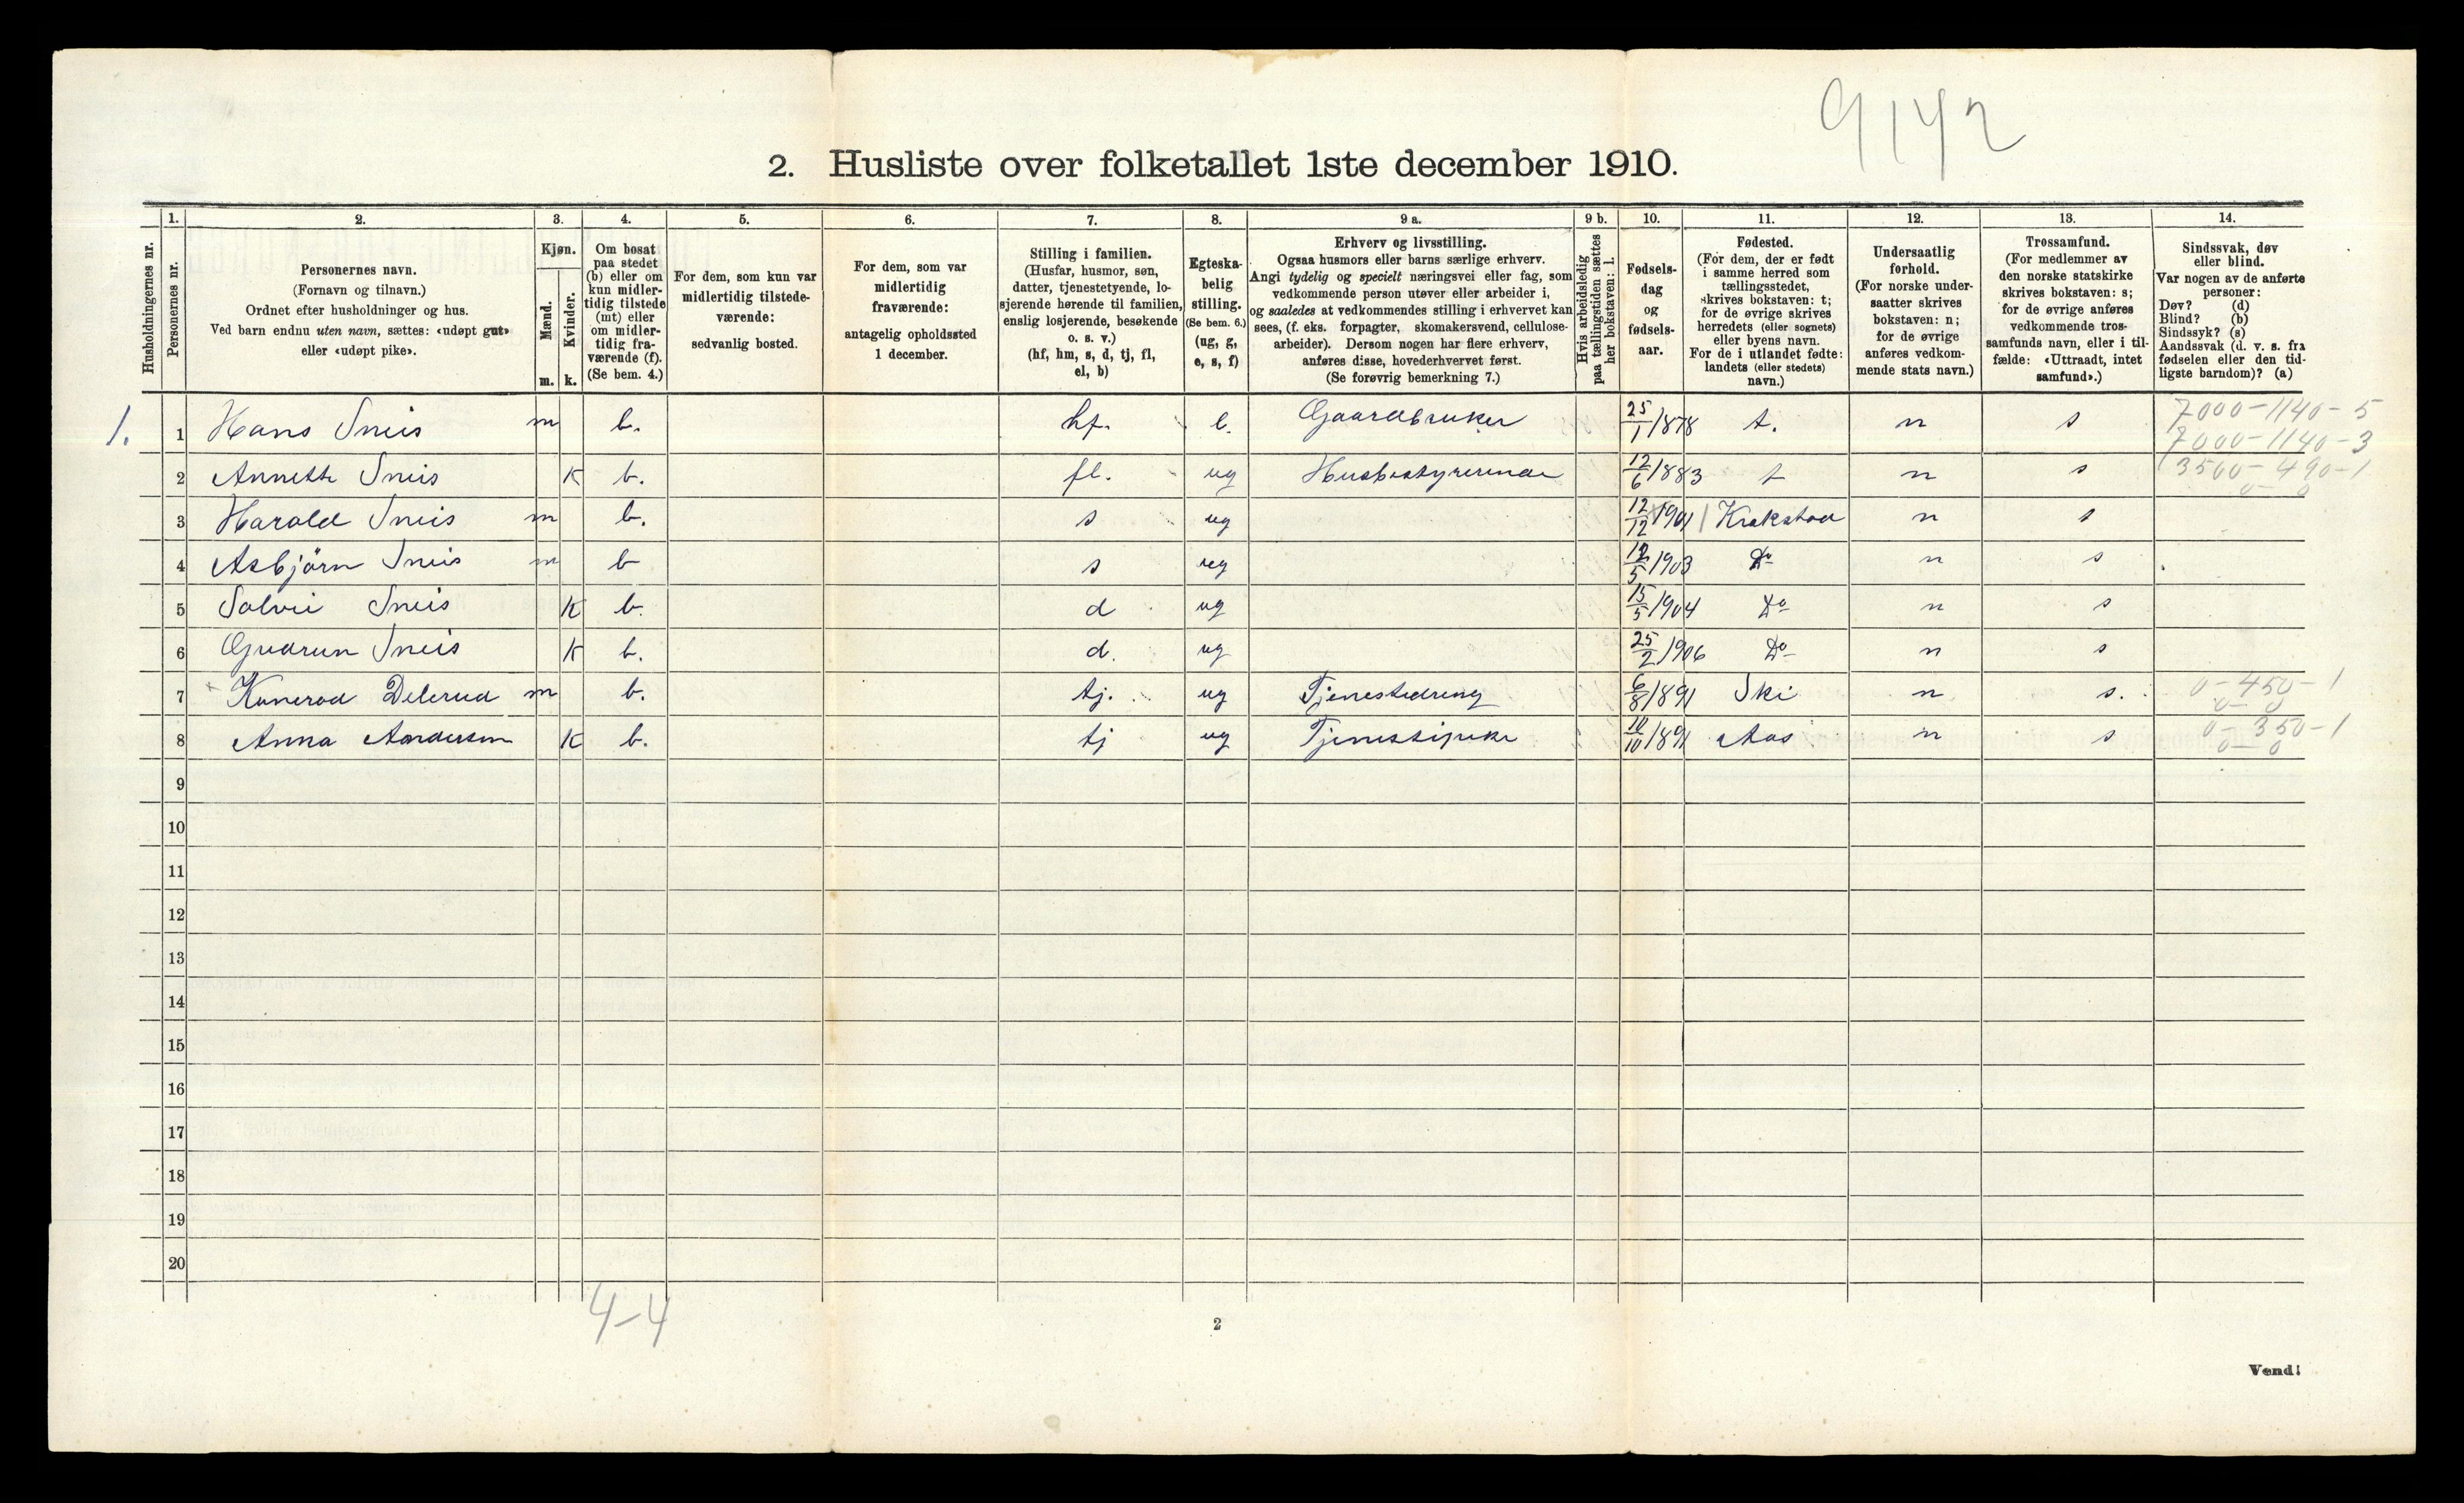 9142
2. Husliste over folketallet 1ste december 1910.
Husholdningernes nr.
1. Personernes nr.
2. Personernes navn.
(Fornavn og tilnavn.)
Ordnet efter husholdninger og hus.
Ved barn endnu uten navn, sættes: «udøpt gut»
eller «udøpt pike».
3. Kjøn.
Mænd. m.
Kvinder. k.
4. Om bosat
paa stedet
(b) eller om
kun midler-
tidig tilstede
(mt) eller
om midler-
tidig fra-
værende (f).
(Se bem. 4.)
5. For dem, som kun var
midlertidig tilstede-
værende:
sedvanlig bosted.
6. For dem, som var
midlertidig
fraværende:
antagelig opholdssted
1 december.
7. Stilling i familien.
(Husfar, husmor, søn,
datter, tjenestetyende, lo-
sjerende hørende til familien,
enslig losjerende, besøkende
o. s. v.)
(hf, hm, s, d, tj, fl,
el, b)
8. Egteska-
belig
stilling.
(Se bem. 6.)
(ug, g,
e, s, f)
9 a. Erhverv og livsstilling.
Ogsaa husmors eller barns særlige erhverv.
Angi tydelig og specielt næringsvei eller fag, som
vedkommende person utøver eller arbeider i,
og saaledes at vedkommendes stilling i erhvervet kan
sees, (f. eks. forpagter, skomakersvend, cellulose-
arbeider). Dersom nogen har flere erhverv,
anføres disse, hovederhvervet først.
(Se forøvrig bemerkning 7.)
9 b. Hvis arbeidsledig
paa tællingstiden sættes
her bokstaven: l.
10. Fødsels-
dag
og
fødsels-
aar.
11. Fødested.
(For dem, der er født
i samme herred som
tællingsstedet,
skrives bokstaven: t;
for de øvrige skrives
herredets (eller sognets)
eller byens navn.
For de i utlandet fødte:
landets (eller stedets)
navn.)
12. Undersaatlig
forhold.
(For norske under-
saatter skrives
bokstaven: n;
for de øvrige
anføres vedkom-
mende stats navn.)
13. Trossamfund.
(For medlemmer av
den norske statskirke
skrives bokstaven: s;
for de øvrige anføres
vedkommende tros-
samfunds navn, eller i til-
fælde: «Uttraadt, intet
samfund».)
14. Sindssvak, døv
eller blind.
Var nogen av de anførte
personer:
Døv? (d)
Blind? (b)
Sindssyk? (s)
Aandssvak (d. v. s. fra
fødselen eller den tid-
ligste barndom)? (a)
1. 1 Hans Sneis m b. hf. e. Gaardbruker 25/1 1878 t. n s 7000-1140-5
7000-1140-3
2 Annette Sneis K b. fl. ug Husbestyrerinde 12/6 1883 t n s 3500-490-1
0-0
3 Harald Sneis m b. s ug 12/12 1901 Krakstad n s
4 Asbjörn Sneis m b s ug 12/5 1903 Do n s
5 Solvei Sneis K b. d ug 15/5 1904 Do n s
6 Gudrun Sneis K b. d. ug 25/2 1906 Do n s
7 Konerad Delerud m b. tj. ug Tjenestedreng 6/8 1891 Ski n s. 0-450-1
0-0
8 Anna Aandersen K b. tj ug Tjenestepike 10/10 1891 Aas n s 0-350-1
0-0
9
10
11
12
13
14
15
16
17
18
19
20
4-4
2
Vend!